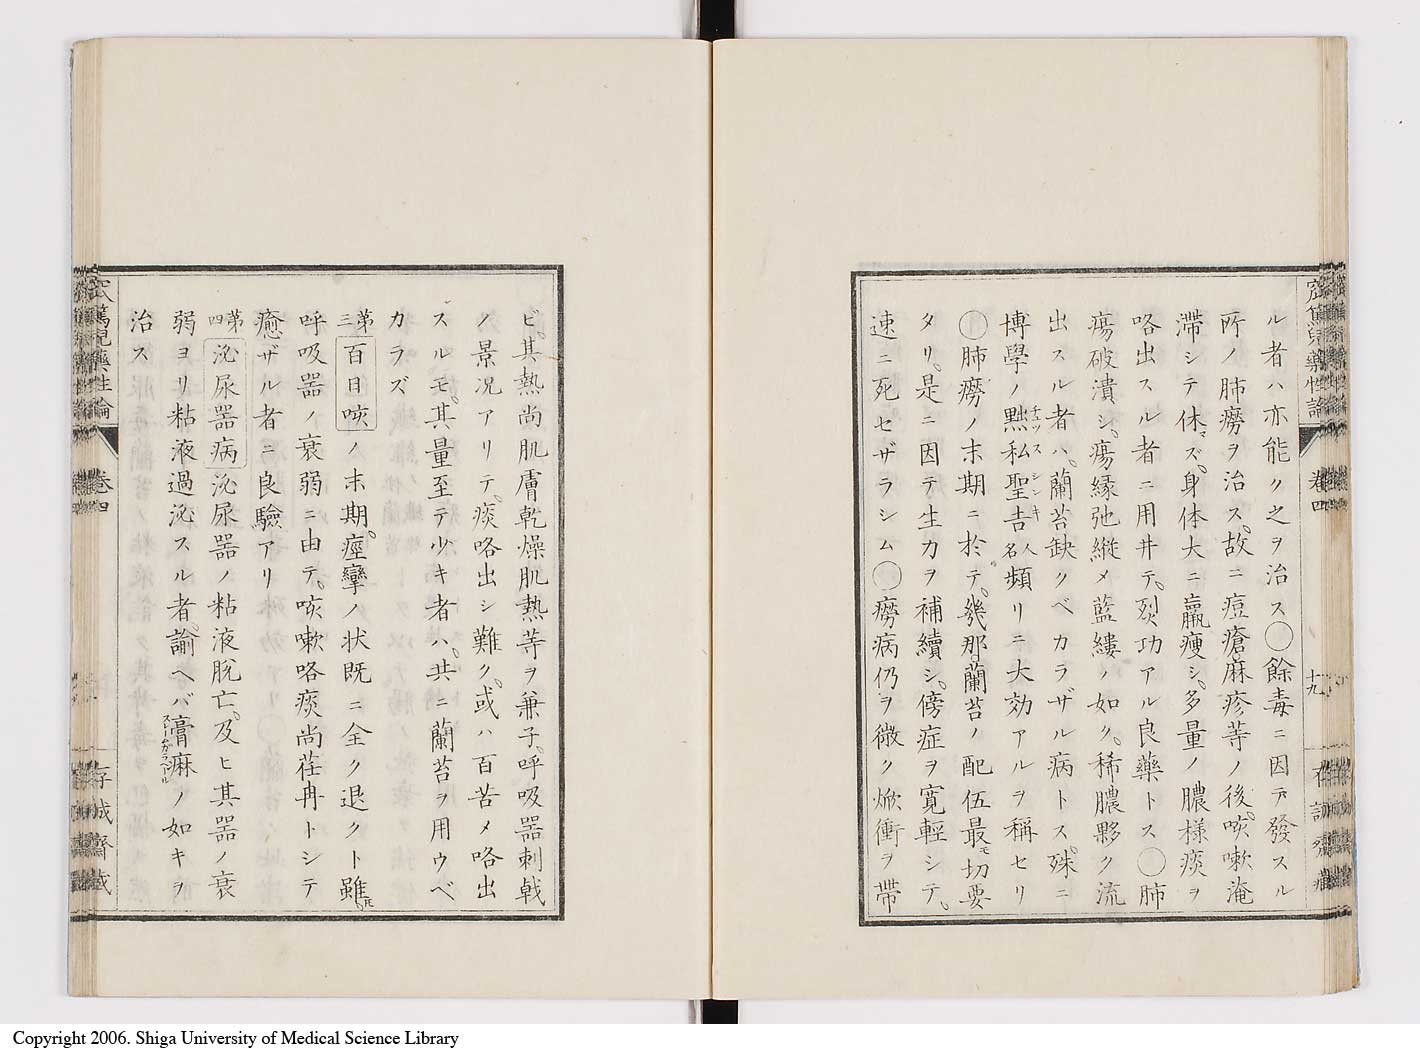 ル者ハ亦能ク之ヲ治ス〇餘毒ニ因テ發スル
所ノ肺癆ヲ治ス。故ニ痘瘡麻疹等ノ後。咳嗽淹
滯シテ休マズ。身体大ニ羸瘦シ。多量ノ膿様痰ヲ
咯出スル者ニ用井テ。烈功アル良藥トス〇肺
瘍破潰シ。瘍縁弛縦メ藍縷ノ如ク。稀膿夥ク流
出スル者ハ。蘭苔缺クベカラザル病トス。殊ニ
博學ノ㸃私聖吉人名頻リニ大効アルヲ稱セリ
〇肺癆ノ末期ニ於テ。幾那蘭苔ノ配伍最モ切要
タリ。是ニ因テ生力ヲ補續シ。傍症ヲ寛輕シテ。
速ニ死セザラシム〇癆病仍ヲ微ク焮衝ヲ帶
卷四
十九
ビ。其熱尚肌膚乾燥肌熱等ヲ兼子。呼吸器刺戟
ノ景況アリテ。痰咯出シ難ク。或ハ百苦メ咯出
スルモ。其量至テ少キ者ハ。共ニ蘭苔ヲ用ウベ
カラズ
第三百日咳ノ末期。痙攣ノ状既ニ全ク退クト雖𪜈。
呼吸器ノ衰弱ニ由テ。咳嗽咯痰尚荏冉トシテ
癒ザル者ニ良驗アリ
第四泌尿器病泌尿器ノ粘液脱亡。及ヒ其器ノ衰
弱ヨリ粘液過泌スル者。諭ヘバ膏麻ノ如キヲ
治ス
窊篤兒藥性論
卷四
存誠齋藏
Copyright 2006. Shiga University of Medical Science Library